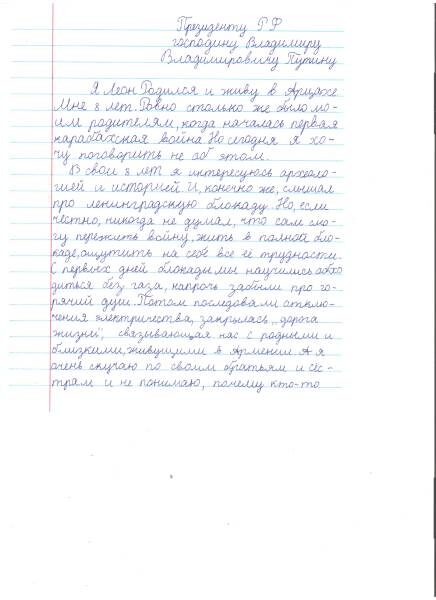 Президенту РФ
господину Владимиру
Владимировичу Путину
Я Леон. Родился и живу в Арцахе.
Мне 8 лет. Ровно столько же было мо-
им родителям, когда началась первая
карабахская война. Но сегодня я хо-
чу поговорить не об этом.
В свои 8 лет я интересуюсь археоло-
гией и историей. И, конечно же, слышал
про ленинградскую блокаду. Но, если
честно, никогда не думал, что сам смо-
гу пережить войну, жить в полной бло-
каде, ощутить на себе все её трудности.
С первых дней блокады мы научились обхо
диться без газа, напрочь забыли про го-
рячий душ. Потом последовали отклю-
чения электричества, закрылась „дорога
жизни", связывающая нас с родными и
близкими, живущими в Армении. А я
очень скучаю по своим братьям и сёс-
трам и не понимаю, почему кто-то